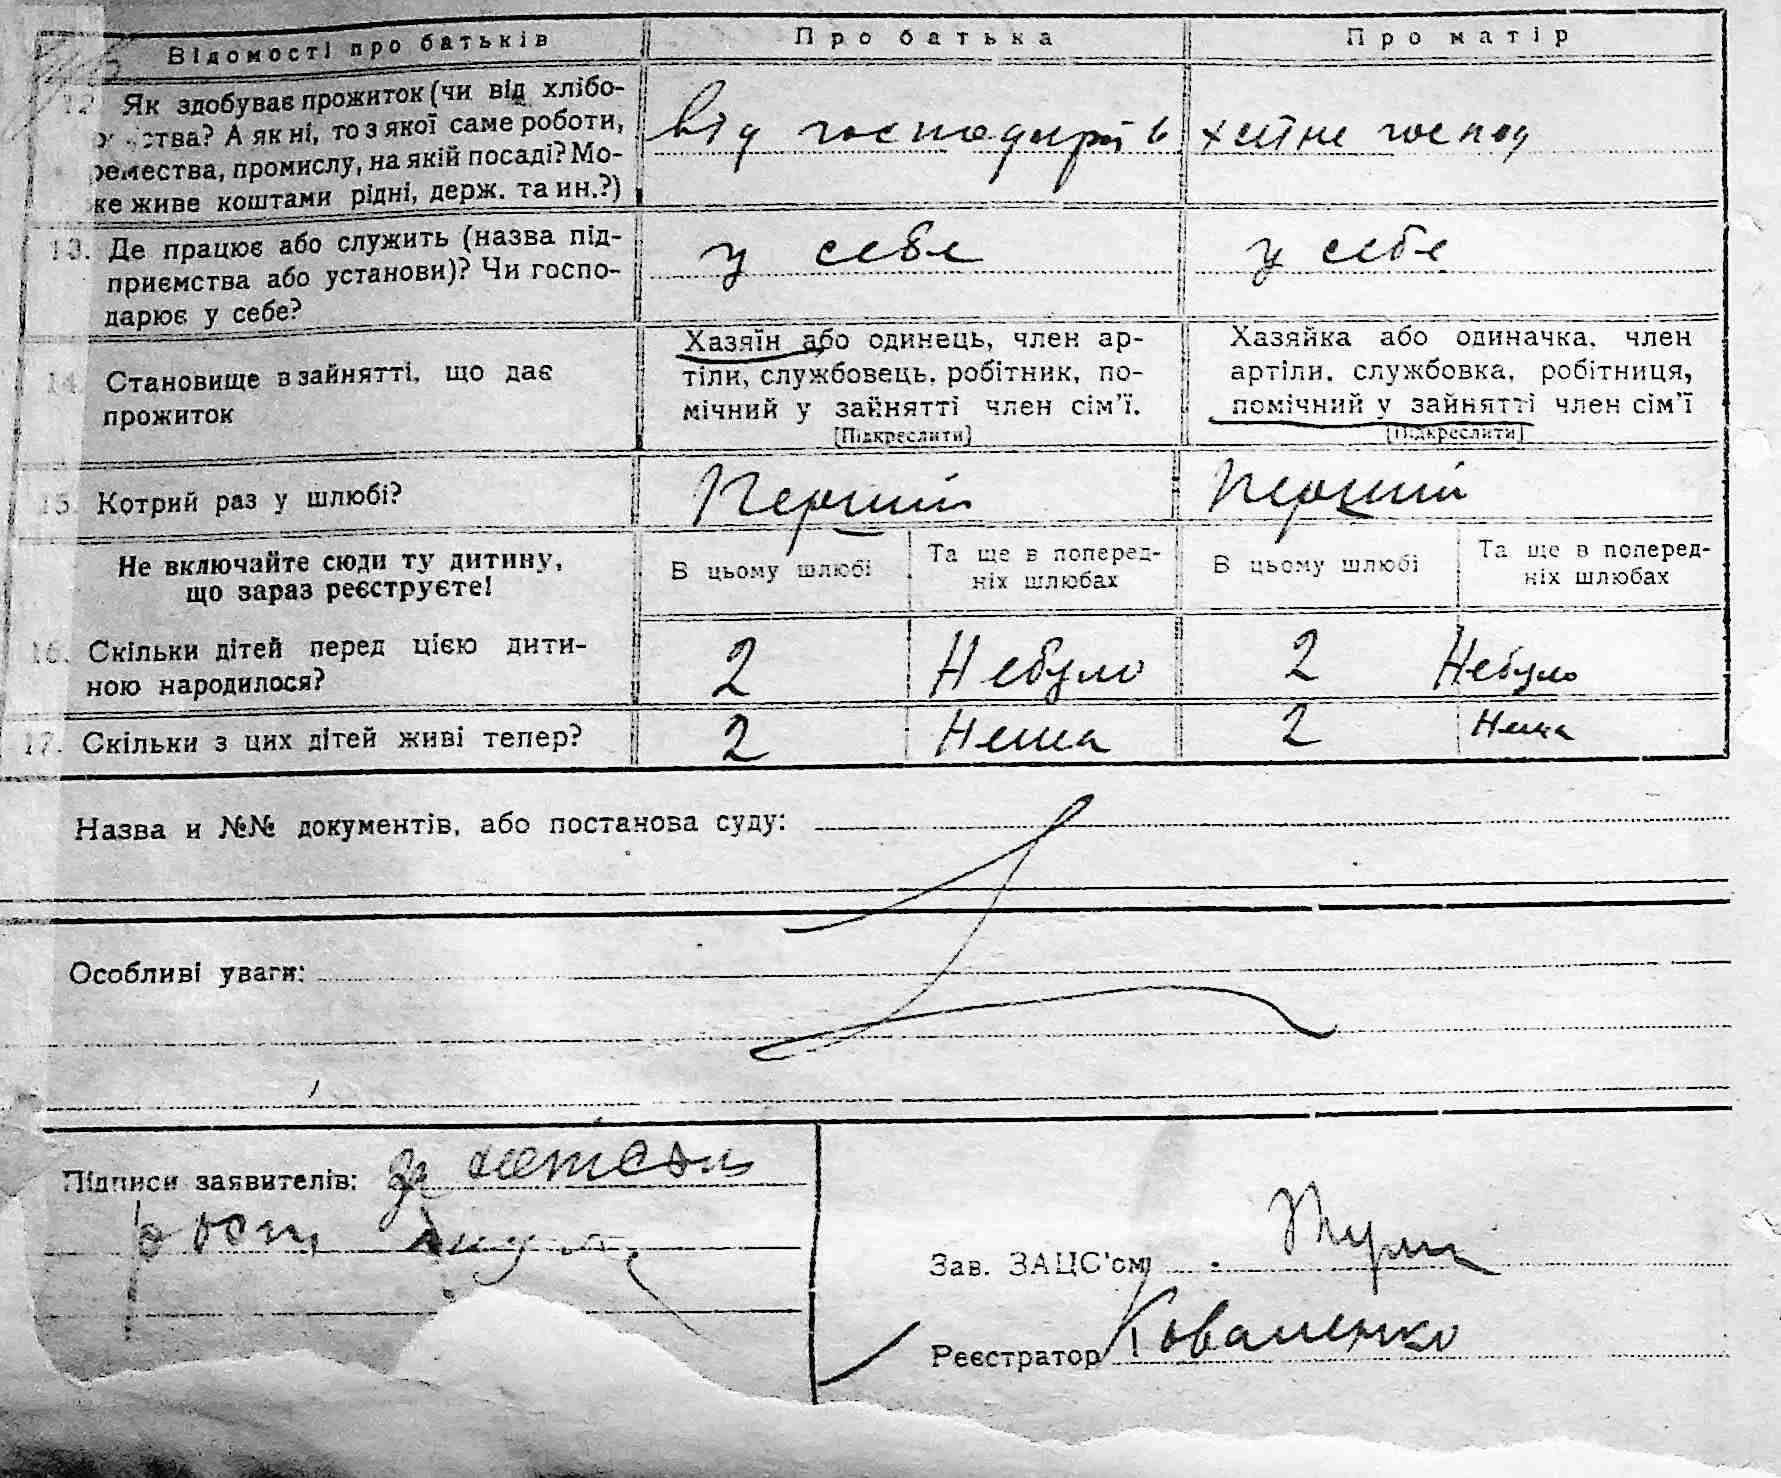 Відомості про батьків
Про батька
Про матір
12. Як здобуває прожиток (чи від хлібо-
ства? А як ні, то з якої саме роботи,
ремества, промислу, на якій посаді? Мо-
же живе коштами рідні, держ. та ин.?)
від
хатне господ
13. Де працює або служить (назва під-
приємства або установи)? Чи госпо-
дарює у себе?
у себе
у себе
14. Становище в зайнятті, що дає
прожиток
Хазяїн або одинець, член ар-
тіли, службовець, робітник, по-
мічний у зайнятті член сім'ї.
[Підкреслити]
Хазяйка або одиначка, член
артіли, службовка, робітниця,
помічний у зайнятті член сім'ї
[Підкреслити]
15. Котрий раз у шлюбі?
Перший
Перший
Не включайте сюди ту дитину,
що зараз реєструєте!
В цьому шлюбі
Та ще в поперед-
ніх шлюбах
В цьому шлюбі
Та ще в поперед-
ніх шлюбах
16. Скільки дітей перед цією дити-
ною народилося?
2
Небуло
2
Небуло
17. Скільки з цих дітей живі тепер?
2
Нема
2
Нема
Назва и №№ документів, або постанова суду:
Особливі уваги:
Підписи заявителів:
Зав. ЗАЦС'ом
Реєстратор Коваленко